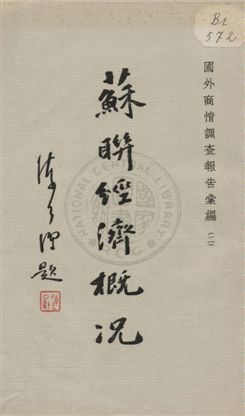 B1
572
國外商情調查報告彙編(二)
蘇聯經濟概況
題
NATIONAL CENTRAL LIBRARY